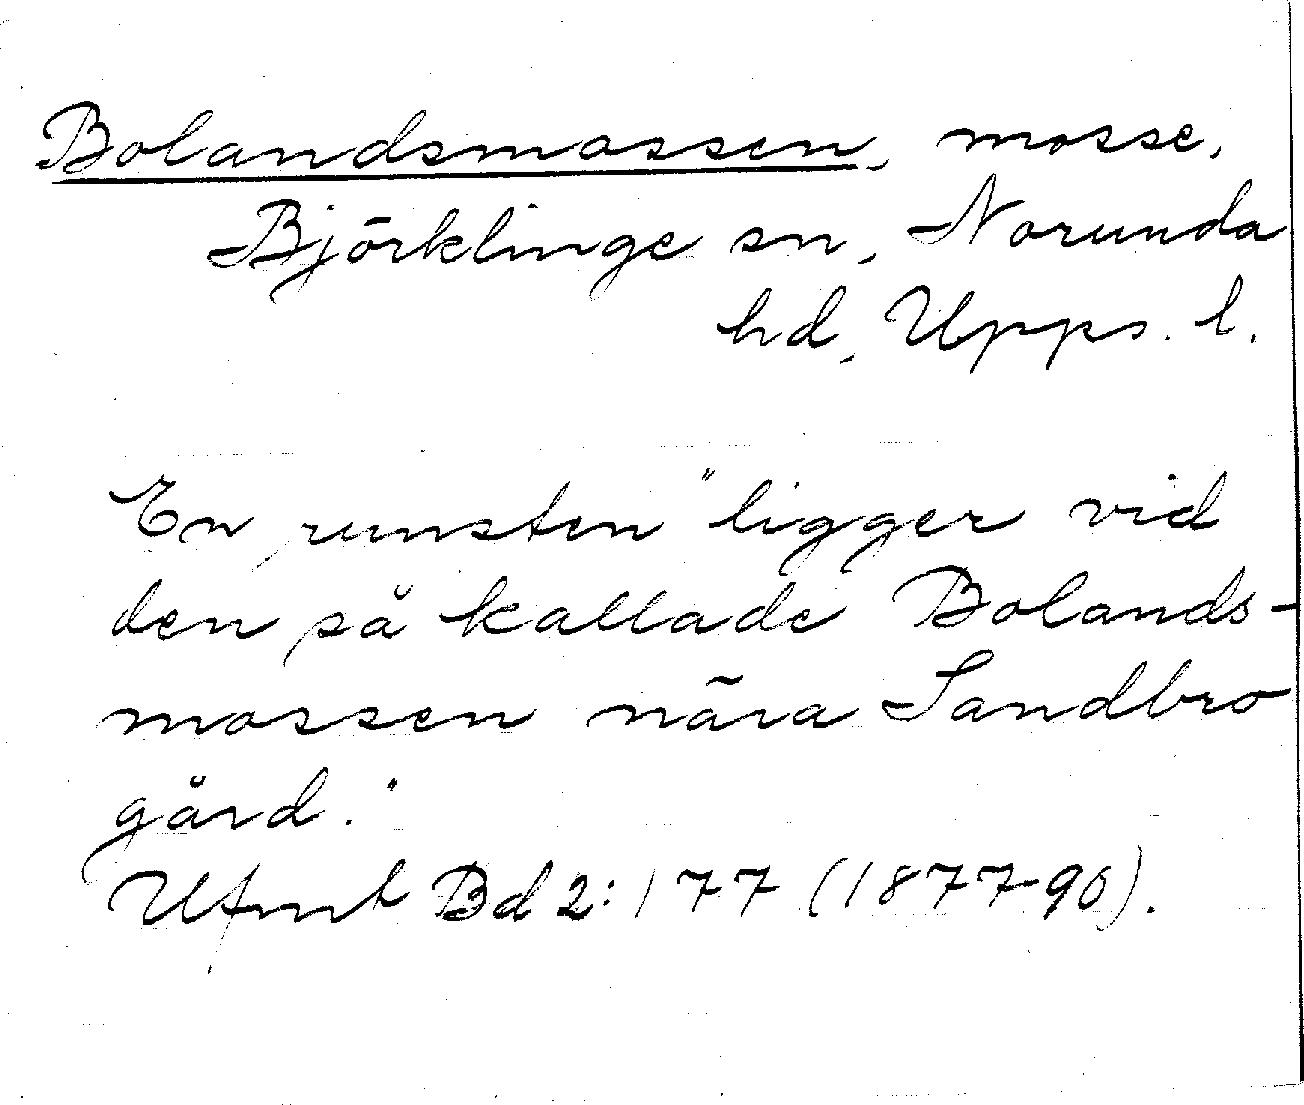 Bolandsmossen, mosse,
Björklinge sn, Norunda
hd, Upps. l.
En runsten "ligger vid
den så kallade Bolands-
mossen nära Sandbro
gård."
Ufmt Bd 2:177 (1877-90).